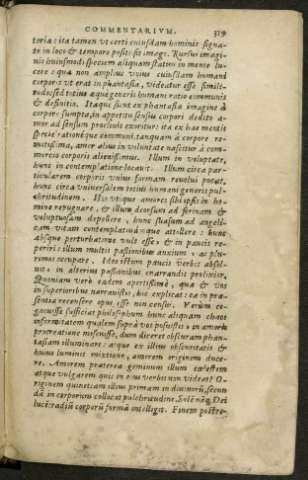 COMMENTARIVM. 319
toria: ita tamen vt certi cuiusdam hominis signa-
te in loco & tempore positi sit imago. Rursus imagi-
nis huiusmodi speciem aliquam statim in mente lu-
cere: quæ non amplius vnius cuiusdam humani
corporis vt erat in phantasia, videatur esse simili-
tudo: sed totius æque generis humani ratio communis
& definitio. Itaque sicut ex phantasiæ imagine à
corpore sumpta, in appetitu sensus corpori dedito a-
mor ad sensum procliuis exoritur: ita ex hac mentis
specie rationéque communi, tanquam à corpore re-
motissima, amor alius in voluntate nascitur à com-
mercio corporis alienissimus. Illum in voluptate,
hunc in contemplatione locant. Illum circa par-
ticularem corporis vnius formam reuolui putat,
hunc circa vniuersalem totius humani generis pul-
chritudinem. Hos vtique amores sibi ipsis in ho-
mine repugnare, & illum deorsum ad ferinam &
voluptuosam depellere, hunc sursum ad angeli-
cam vitam contemplatiuámque attollere: hunc
absque perturbatione vult esse, & in paucis re-
periri: illum multis passionibus anxium, ac plu-
rimos occupare. Ideo illum paucis verbis absol-
uit, in alterius passionibus enarrandis prolixior.
Quoniam verò eadem apertissimè, quæ & vos
in superioribus narrauistis, hic explicat: ea in præ-
sentia recensere opus esse non censui. Verùm co-
gnouisse sufficiat philosophum hunc aliquam chaos
informitatem qualem supra vos posuistis, in amoris
procreatione miscuisse, dum diceret obscuram phan-
tasiam illuminare: atque ex illius obscuritatis &
huius luminis mixtione, amorem originem duce-
re. Amorem præterea geminum illum cœlestem
atque vulgarem quis in eius verbis non videat? O-
riginem quinetiam illius primam in diuinorum, secun-
dam in corporum collocat pulchritudine. Solem enim, Dei
lucem: radium, corporum formam intelligit. Finem postre-